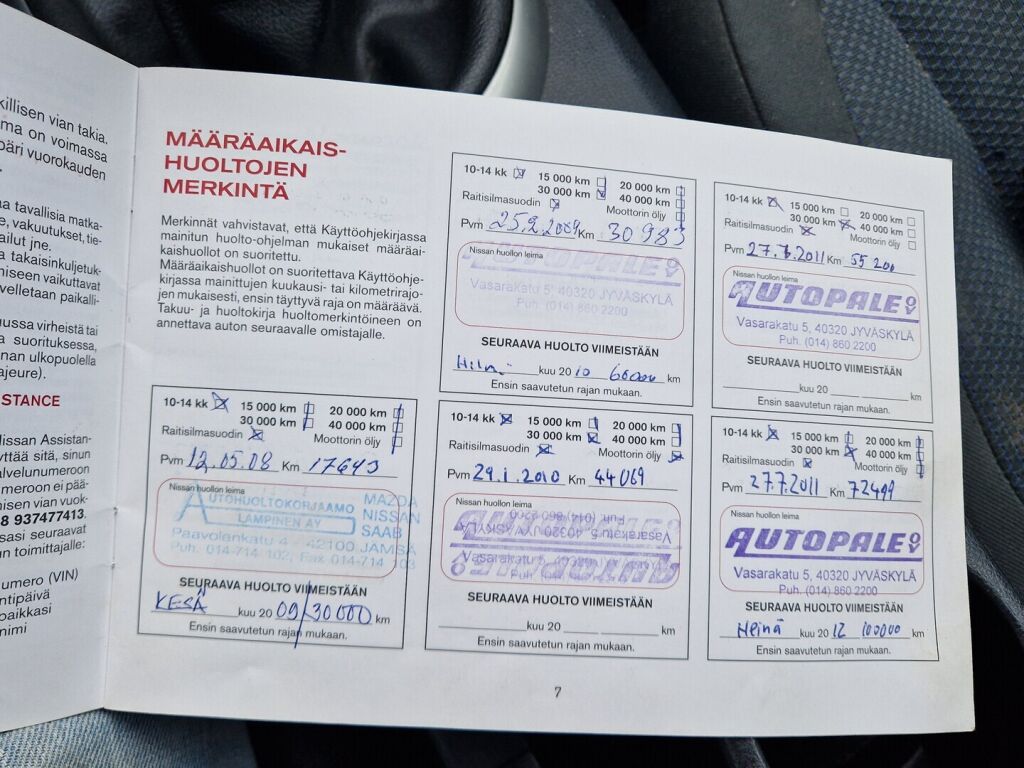 killisen vian takia.
ma on voimassa
päri vuorokauden
aa tavallisia matka-
e, vakuutukset, tie-
ailut jne.
a takaisinkuljetuk-
miseen vaikuttavat
velletaan paikalli-
ussa virheistä tai
a suorituksessa,
nan ulkopuolella
ajeure).
STANCE
Nissan Assistan-
yttää sitä, sinun
alvelunumeroon
meroon ei pää-
misen vian vuok-
8 937477413.
sasi seuraavat
n toimittajalle:
umero (VIN)
ntipäivä
paikkasi
nimi
MÄÄRÄAIKAIS-
HUOLTOJEN
MERKINTÄ
Merkinnät vahvistavat, että Käyttöohjekirjassa
mainitun huolto-ohjelman mukaiset määräai-
kaishuollot on suoritettu.
Määräaikaishuollot on suoritettava Käyttöohje-
kirjassa mainittujen kuukausi- tai kilometrirajo-
jen mukaisesti, ensin täyttyvä raja on määräävä.
Takuu- ja huoltokirja huoltomerkintöineen on
annettava auton seuraavalle omistajalle.
10-14 kk 15 000 km 20 000 km
30 000 km 40 000 km
Raitisilmasuodin Moottorin öljy
Pvm 12.05.08 Km 17643
Nissan huollon leima
AUTOHUOLTOKORJAAMO MAZDA
LAMPINEN AY NISSAN
SAAB
Paavolankatu 4 - 42100 JÄMSÄ
Puh. 014-714 102, Fax 014-714 103
SEURAAVA HUOLTO VIIMEISTÄÄN
KESÄ kuu 20 09/30000 km
Ensin saavutetun rajan mukaan.
10-14 kk 15 000 km 20 000 km
30 000 km 40 000 km
Raitisilmasuodin Moottorin öljy
Pvm 25.2.2009 Km 30983
Nissan huollon leima
AUTOPALE OY
Vasarakatu 5, 40320 JYVÄSKYLÄ
Puh. (014) 860 2200
SEURAAVA HUOLTO VIIMEISTÄÄN
kuu 20 10 60000 km
Ensin saavutetun rajan mukaan.
10-14 kk 15 000 km 20 000 km
30 000 km 40 000 km
Raitisilmasuodin Moottorin öljy
Pvm 29.1.2010 Km 44069
Nissan huollon leima
AUTOPALE OY
Vasarakatu 5, 40320 JYVÄSKYLÄ
Puh. (014) 860 2200
AUTOPALE OY
Vasarakatu 5, 40320 JYVÄSKYLÄ
SEURAAVA HUOLTO VIIMEISTÄÄN
kuu 20 km
Ensin saavutetun rajan mukaan.
10-14 kk 15 000 km 20 000 km
30 000 km 40 000 km
Raitisilmasuodin Moottorin öljy
Pvm Km 55200
Nissan huollon leima
AUTOPALE OY
Vasarakatu 5, 40320 JYVÄSKYLÄ
Puh. (014) 860 2200
SEURAAVA HUOLTO VIIMEISTÄÄN
kuu 20 km
Ensin saavutetun rajan mukaan.
10-14 kk 15 000 km 20 000 km
30 000 km 40 000 km
Raitisilmasuodin Moottorin öljy
Pvm 27.7.2011 Km 72499
Nissan huollon leima
AUTOPALE OY
Vasarakatu 5, 40320 JYVÄSKYLÄ
Puh. (014) 860 2200
SEURAAVA HUOLTO VIIMEISTÄÄN
Heinä kuu 20 12 100000 km
Ensin saavutetun rajan mukaan.
7